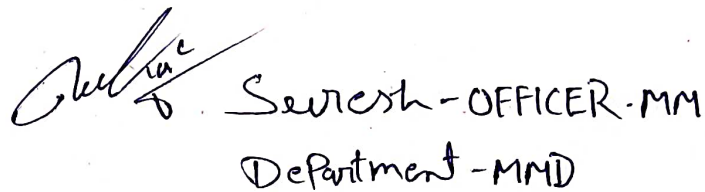 Suresh - OFFICER - MM
Department - MMD